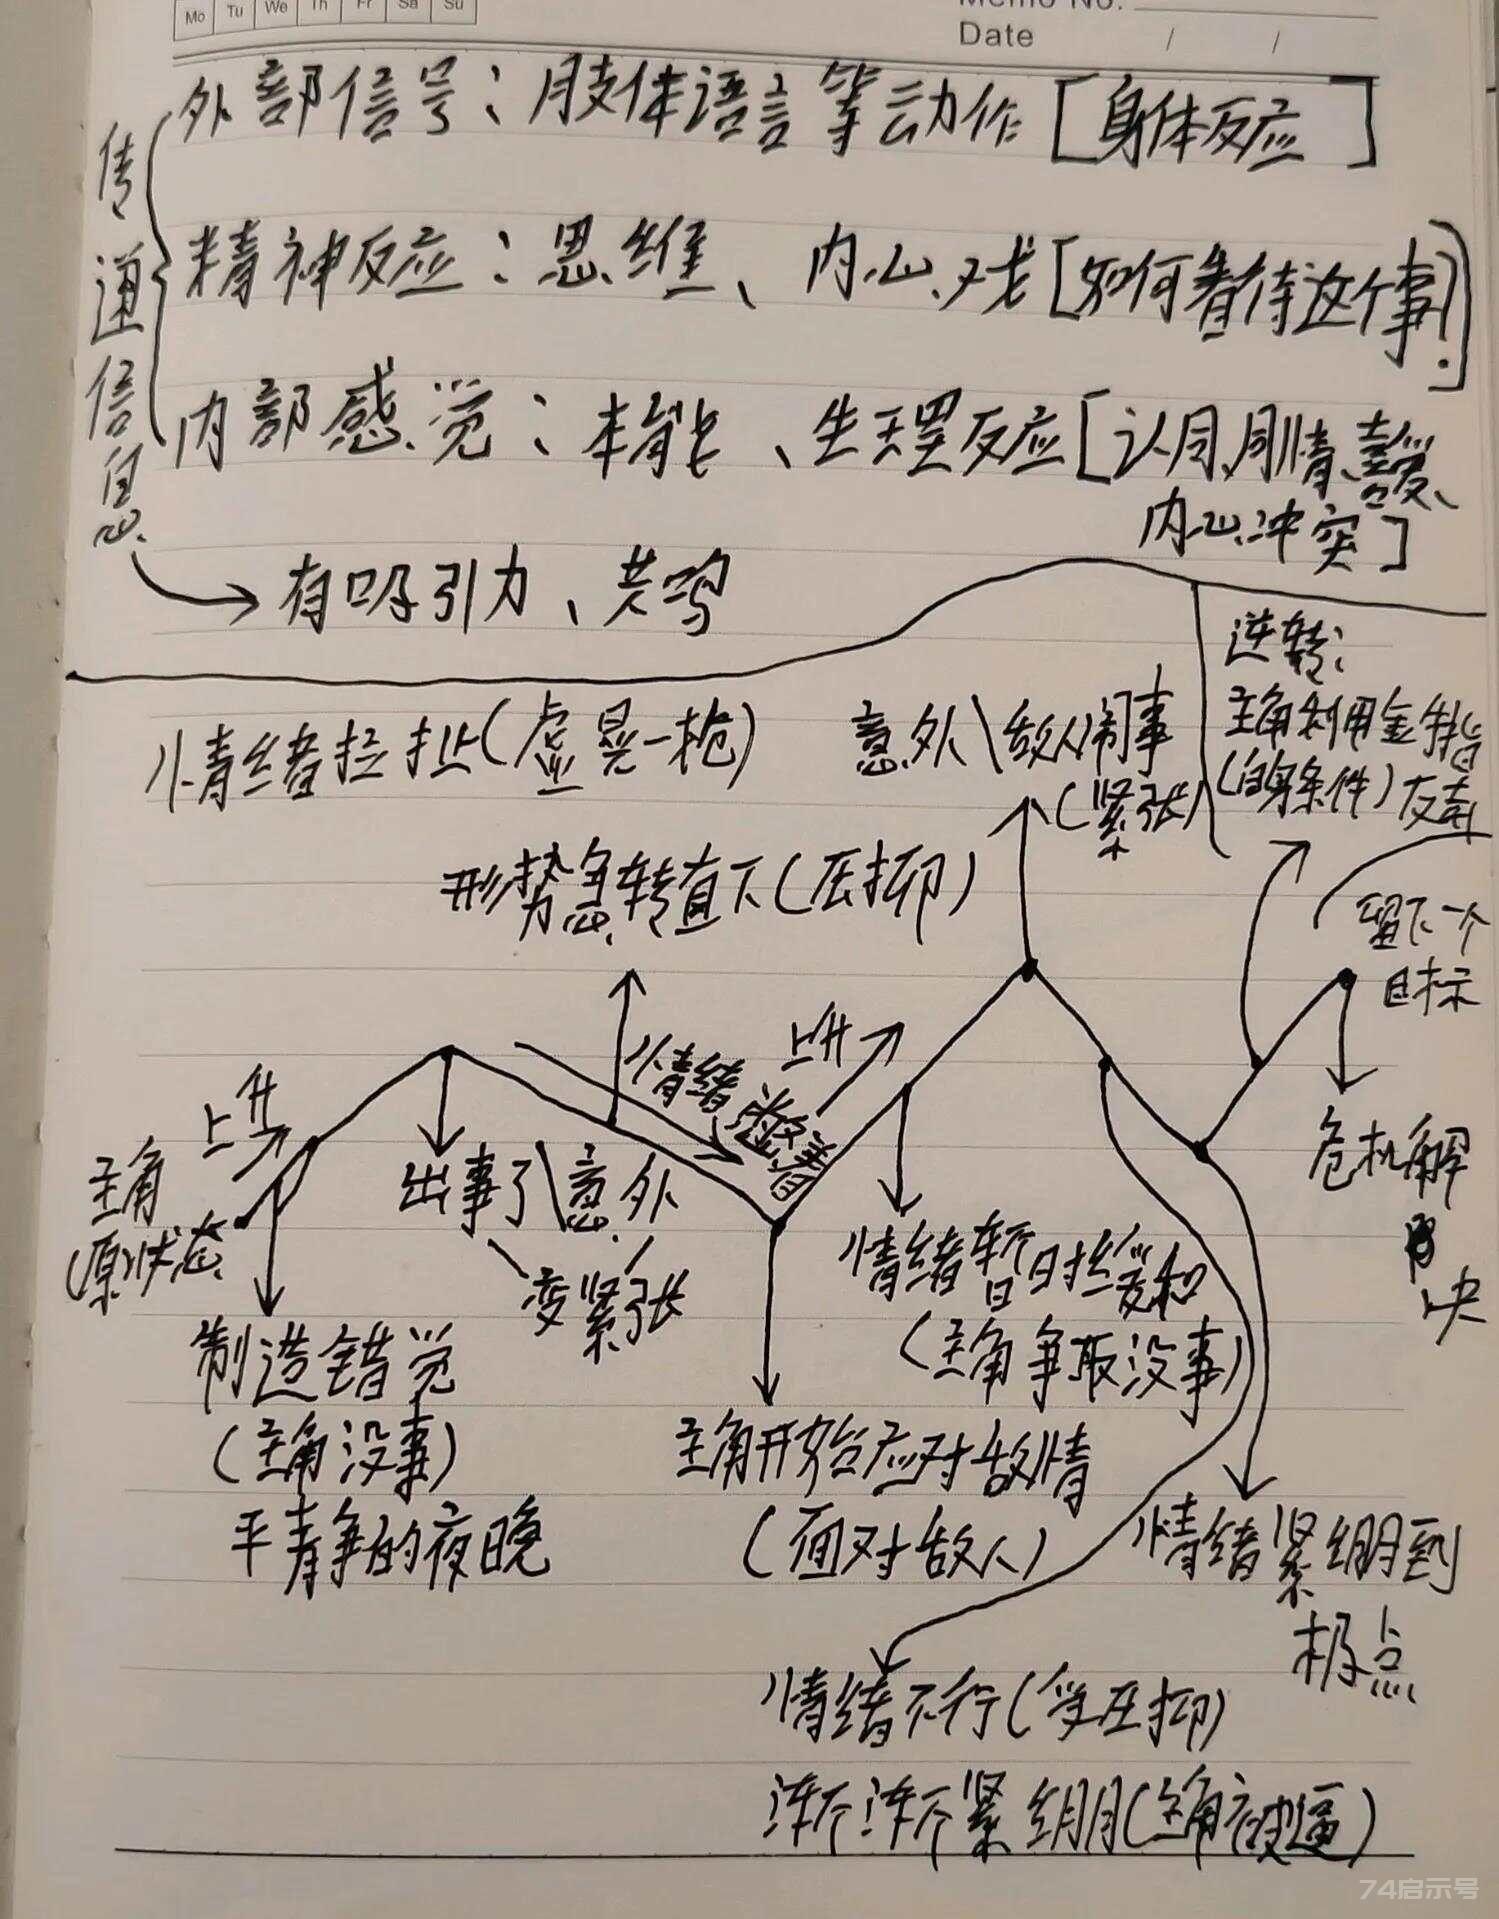 Mo Tu We Th Fr Sa Su
Memo No.
Date / /
传递信息
外部信号：肢体语言等动作［身体反应］
精神反应：思维、内心戏［如何看待这个事］
内部感觉：本能、生理反应［认同、同情、喜爱、
内心冲突］
有吸引力、共鸣
情绪拉扯（虚晃一枪）
意外\敌人闹事
（紧张）
逆转：
主角利用金手指
（自身条件）反击
形势急转直下（压抑）
留下一个
目标
情绪
上升
上升
主角
（原）状态
出事了\意外
变紧张
危机解
决
情绪暂时缓和
（主角争取没事）
制造错觉
（主角没事）
平静的夜晚
主角开始应对敌情
（面对敌人）
情绪紧绷到
极点
情绪下行（受压抑）
渐渐紧绷（主角被逼）
74启示号